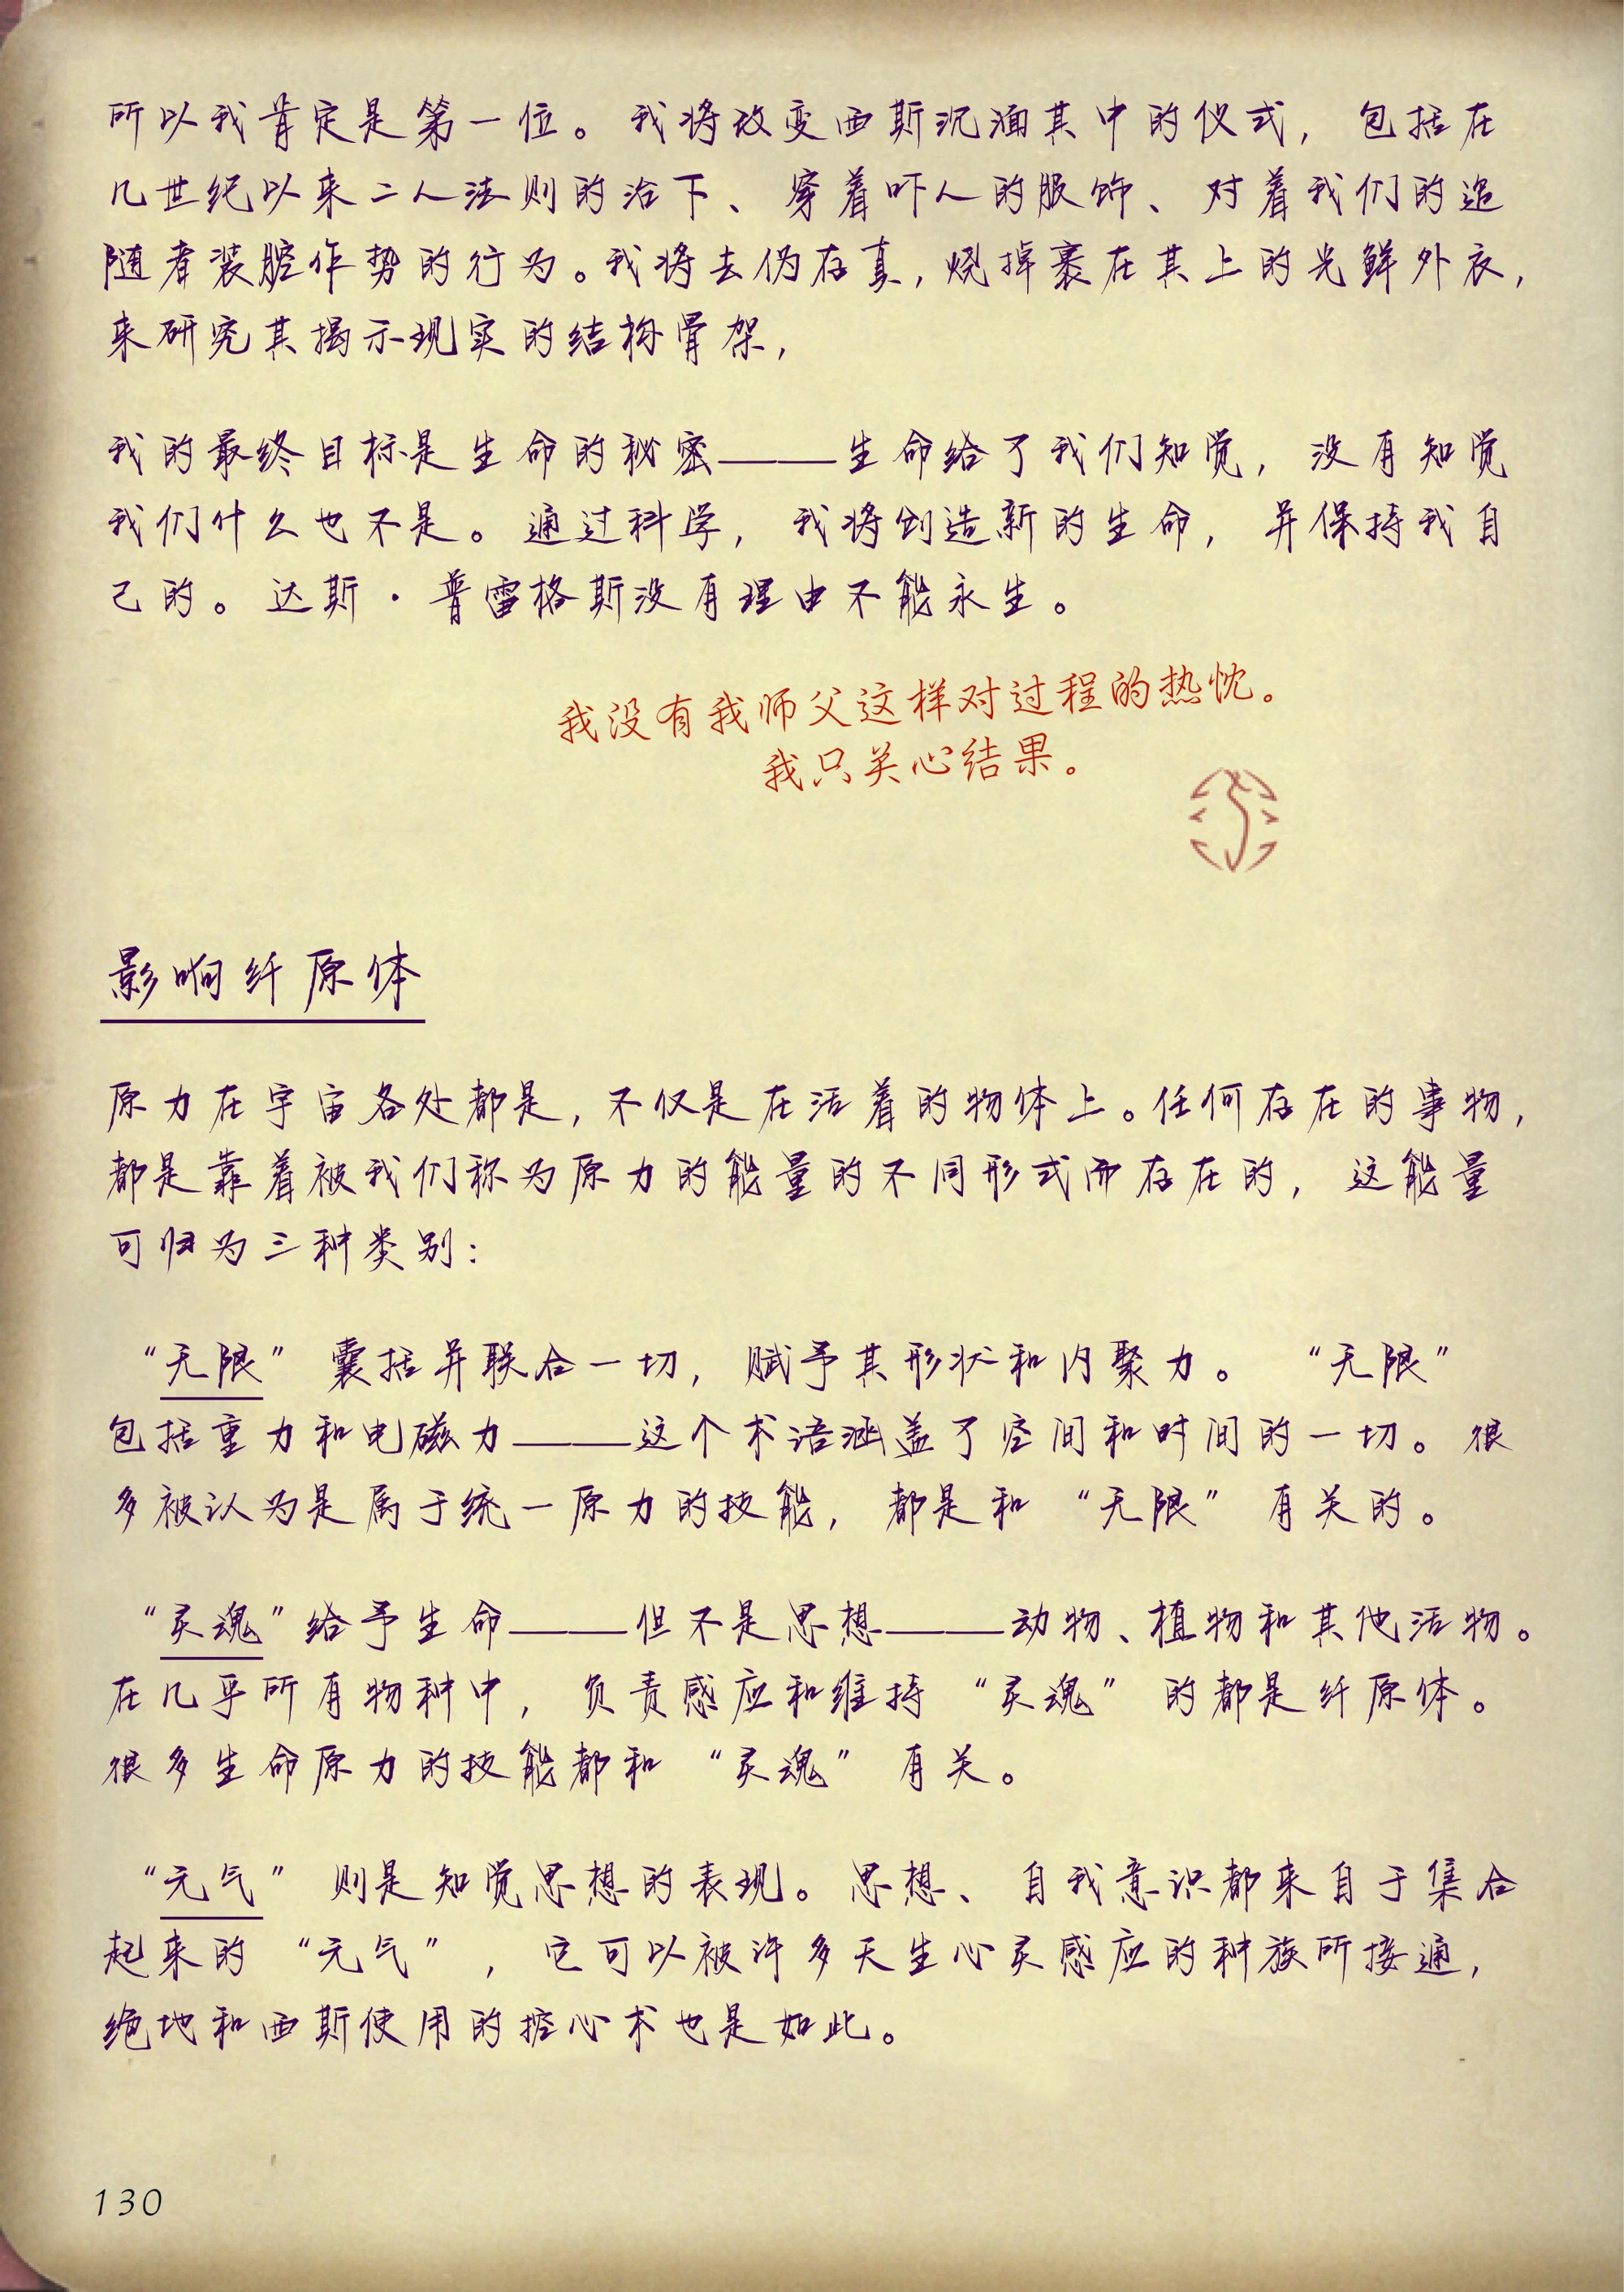 所以我肯定是第一位。我将改变西斯沉湎其中的仪式，包括在
几世纪以来二人法则的治下、穿着吓人的服饰、对着我们的追
随者装腔作势的行为。我将去伪存真，烧掉裹在其上的光鲜外衣，
来研究其揭示现实的结构骨架，
我的最终目标是生命的秘密——生命给了我们知觉，没有知觉
我们什么也不是。通过科学，我将创造新的生命，并保持我自
己的。达斯·普雷格斯没有理由不能永生。
我没有我师父这样对过程的热忱。
我只关心结果。
影响纤原体
原力在宇宙各处都是，不仅是在活着的物体上。任何存在的事物，
都是靠着被我们称为原力的能量的不同形式而存在的，这能量
可归为三种类别：
“无限”囊括并联合一切，赋予其形状和内聚力。“无限”
包括重力和电磁力——这个术语涵盖了空间和时间的一切。很
多被认为是属于统一原力的技能，都是和“无限”有关的。
“灵魂”给予生命——但不是思想——动物、植物和其他活物。
在几乎所有物种中，负责感应和维持“灵魂”的都是纤原体。
很多生命原力的技能都和“灵魂”有关。
“元气”则是知觉思想的表现。思想、自我意识都来自于集合
起来的“元气”，它可以被许多天生心灵感应的种族所接通，
绝地和西斯使用的控心术也是如此。
130